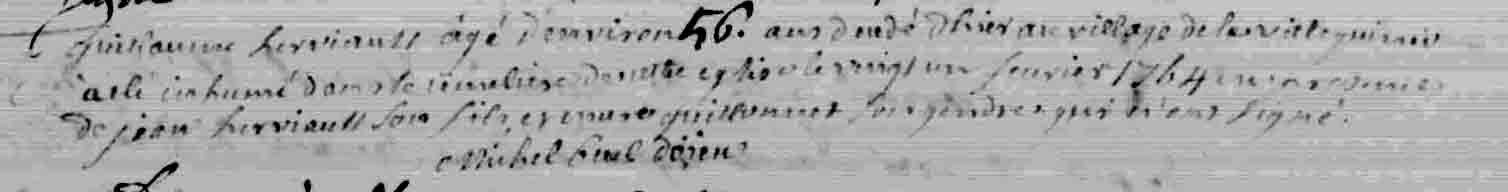 guillaume herviault âgé d'environ 56. ans decedé d'hier au village de la
a esté inhumé dans le cimetiere de notre eglise le vingt un feuvier 1764 en presence
de jean herviault son fils, et guillonnet son gendre qui n'ont signé.
Michel doyen